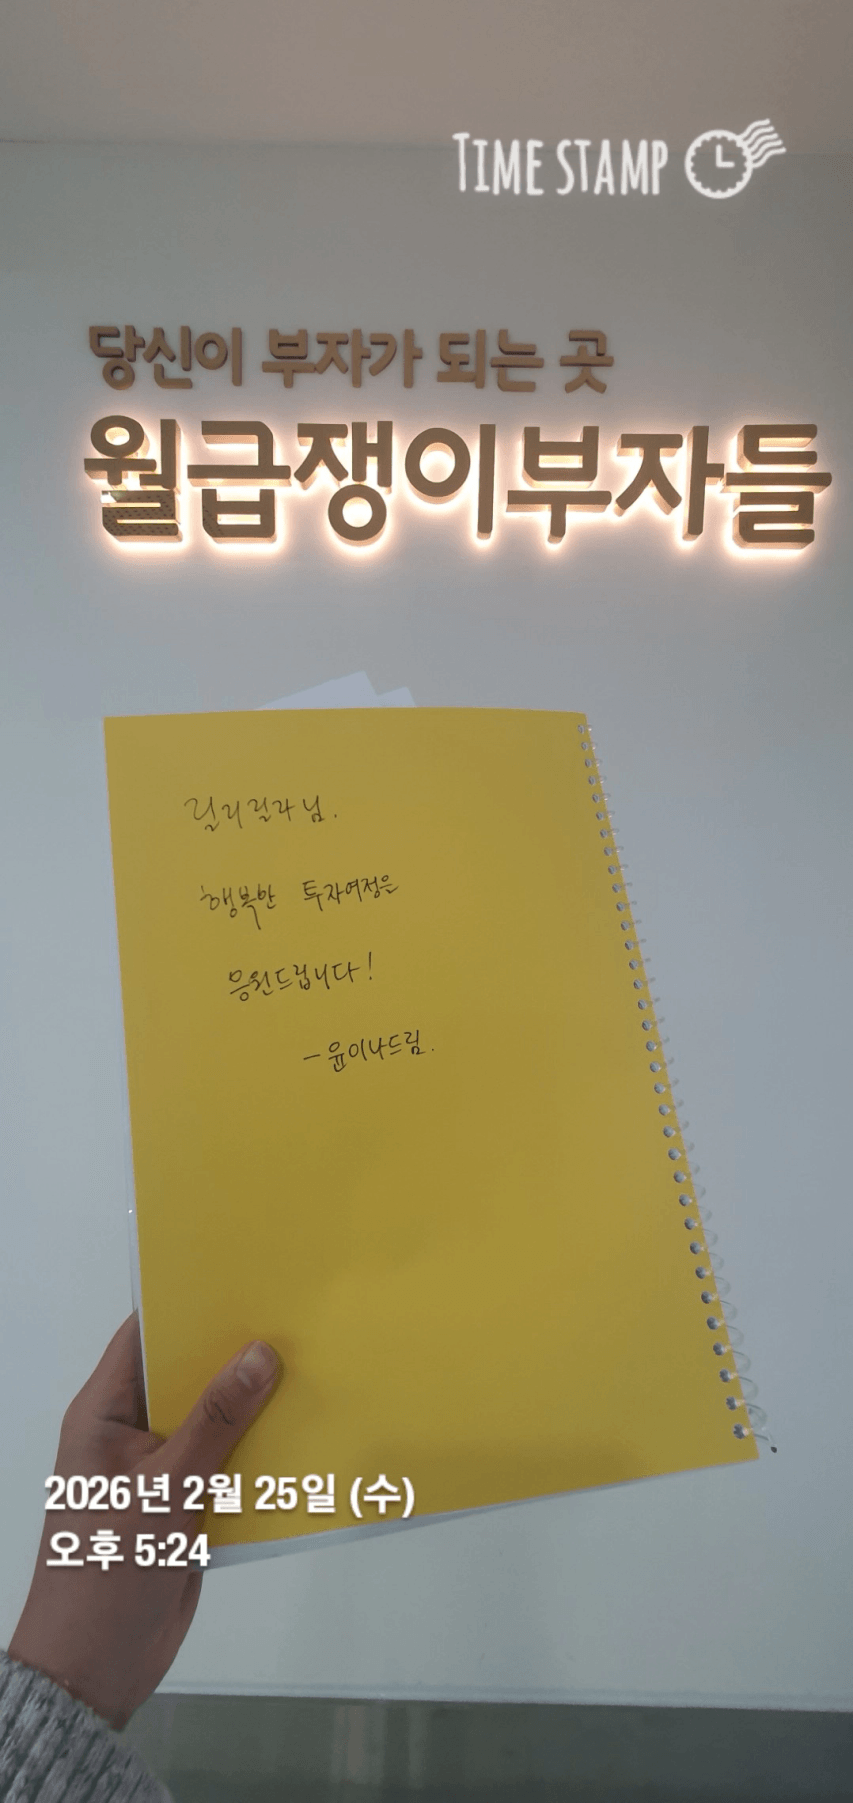 TIME STAMP
당신이 부자가 되는 곳
월급쟁이부자들
릴리릴라님.
행복한 투자여정은
응원드립니다!
-윤이나드림.
2026년 2월 25일 (수)
오후 5:24